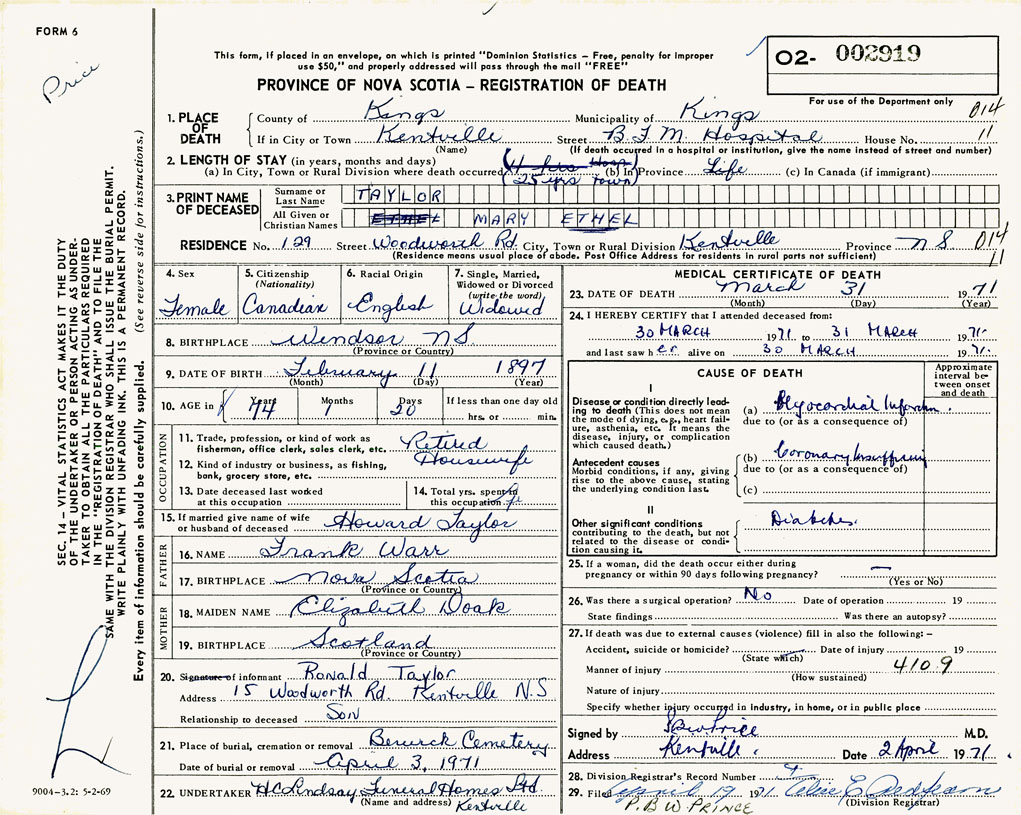 FORM 6
Price
This form, if placed in an envelope, on which is printed "Dominion Statistics – Free, penalty for improper
use $50," and properly addressed will pass through the mail "FREE"
O2- 002919
For use of the Department only
PROVINCE OF NOVA SCOTIA – REGISTRATION OF DEATH
1. PLACE OF DEATH
County of Kings Municipality of Kings 014
If in City or Town Kentville Street B.F.M. Hospital House No. 11
(Name) (If death occurred in a hospital or institution, give the name instead of street and number)
2. LENGTH OF STAY (in years, months and days) (11 hrs Hosp)
(a) In City, Town or Rural Division where death occurred (25 yrs Town) (b) In Province Life (c) In Canada (if immigrant)
3. PRINT NAME OF DECEASED
Surname or Last Name TAYLOR
All Given or Christian Names ETHEL MARY ETHEL
RESIDENCE No. 129 Street Woodworth Rd. City, Town or Rural Division Kentville Province N S 014
(Residence means usual place of abode. Post Office Address for residents in rural parts not sufficient) 11
4. Sex
Female
5. Citizenship
(Nationality)
Canadian
6. Racial Origin
English
7. Single, Married,
Widowed or Divorced
(write the word)
Widowed
8. BIRTHPLACE Windsor NS
(Province or Country)
9. DATE OF BIRTH February 11 1897
(Month) (Day) (Year)
10. AGE in Years 74 Months 1 Days 20 If less than one day old
hrs. or min.
OCCUPATION
11. Trade, profession, or kind of work as
fisherman, office clerk, sales clerk, etc. Retired
12. Kind of industry or business, as fishing,
bank, grocery store, etc. Housewife
13. Date deceased last worked
at this occupation
14. Total yrs. spent in
this occupation
15. If married give name of wife
or husband of deceased Howard Taylor
FATHER
16. NAME Frank Warr
17. BIRTHPLACE Nova Scotia
(Province or Country)
MOTHER
18. MAIDEN NAME Elizabeth Doak
19. BIRTHPLACE Scotland
(Province or Country)
20. Signature of informant Ronald Taylor
Address 15 Woodworth Rd. Kentville N.S
Relationship to deceased Son
21. Place of burial, cremation or removal Berwick Cemetery
Date of burial or removal April 3, 1971
22. UNDERTAKER HC Lindsay Funeral Homes Ltd
(Name and address) Kentville
MEDICAL CERTIFICATE OF DEATH
23. DATE OF DEATH March 31 1971
(Month) (Day) (Year)
24. I HEREBY CERTIFY that I attended deceased from:
30 MARCH 1971 to 31 MARCH 1971.
and last saw her alive on 30 MARCH 1971.
CAUSE OF DEATH
Approximate
interval be-
tween onset
and death
I
Disease or condition directly lead-
ing to death (This does not mean
the mode of dying, e.g., heart fail-
ure, asthenia, etc. It means the
disease, injury, or complication
which caused death.)
(a) Myocardial Infarction.
due to (or as a consequence of)
Antecedent causes
Morbid conditions, if any, giving
rise to the above cause, stating
the underlying condition last.
(b) Coronary Insufficiency
due to (or as a consequence of)
(c)
II
Other significant conditions
contributing to the death, but not
related to the disease or condi-
tion causing it.
Diabetes.
25. If a woman, did the death occur either during
pregnancy or within 90 days following pregnancy? —
(Yes or No)
26. Was there a surgical operation? No Date of operation 19
State findings Was there an autopsy?
27. If death was due to external causes (violence) fill in also the following: –
Accident, suicide or homicide? Date of injury 19
(State which)
Manner of injury 4109
(How sustained)
Nature of injury
Specify whether injury occurred in industry, in home, or in public place
Signed by M.D.
Address Kentville. Date 2 April 1971.
28. Division Registrar's Record Number
29. Filed April 19 1971
(Division Registrar)
P.B W PRINCE
SEC. 14 – VITAL STATISTICS ACT MAKES IT THE DUTY
OF THE UNDERTAKER OR PERSON ACTING AS UNDER-
TAKER TO OBTAIN ALL THE PARTICULARS REQUIRED
IN THE "REGISTRATION OF DEATH" AND TO FILE THE
SAME WITH THE DIVISION REGISTRAR WHO SHALL ISSUE THE BURIAL PERMIT.
WRITE PLAINLY WITH UNFADING INK. THIS IS A PERMANENT RECORD.
Every item of information should be carefully supplied. (See reverse side for instructions.)
9004-3.2: 5-2-69